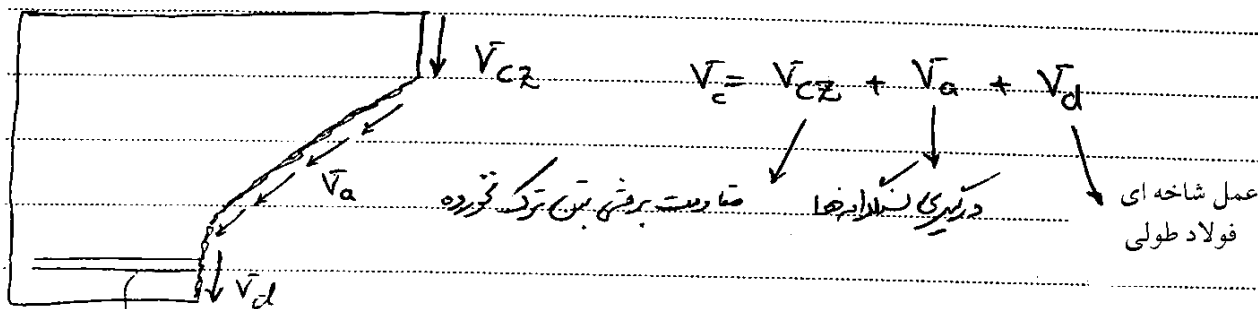 V_cz
V_c = V_cz + V_a + V_d
V_a
مقاومت برشی بتن ترک نخورده
درگیری سنگدانه‌ها
عمل شاخه ای
فولاد طولی
V_d